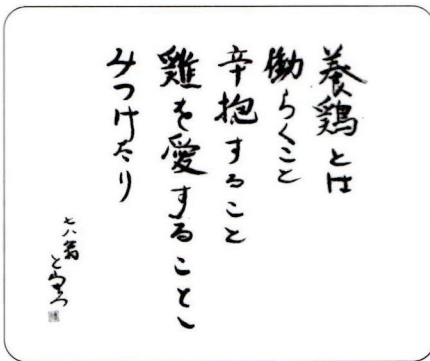 養鶏とは
働らくこと
辛抱すること
雞を愛することゝ
みつけたり
七八翁